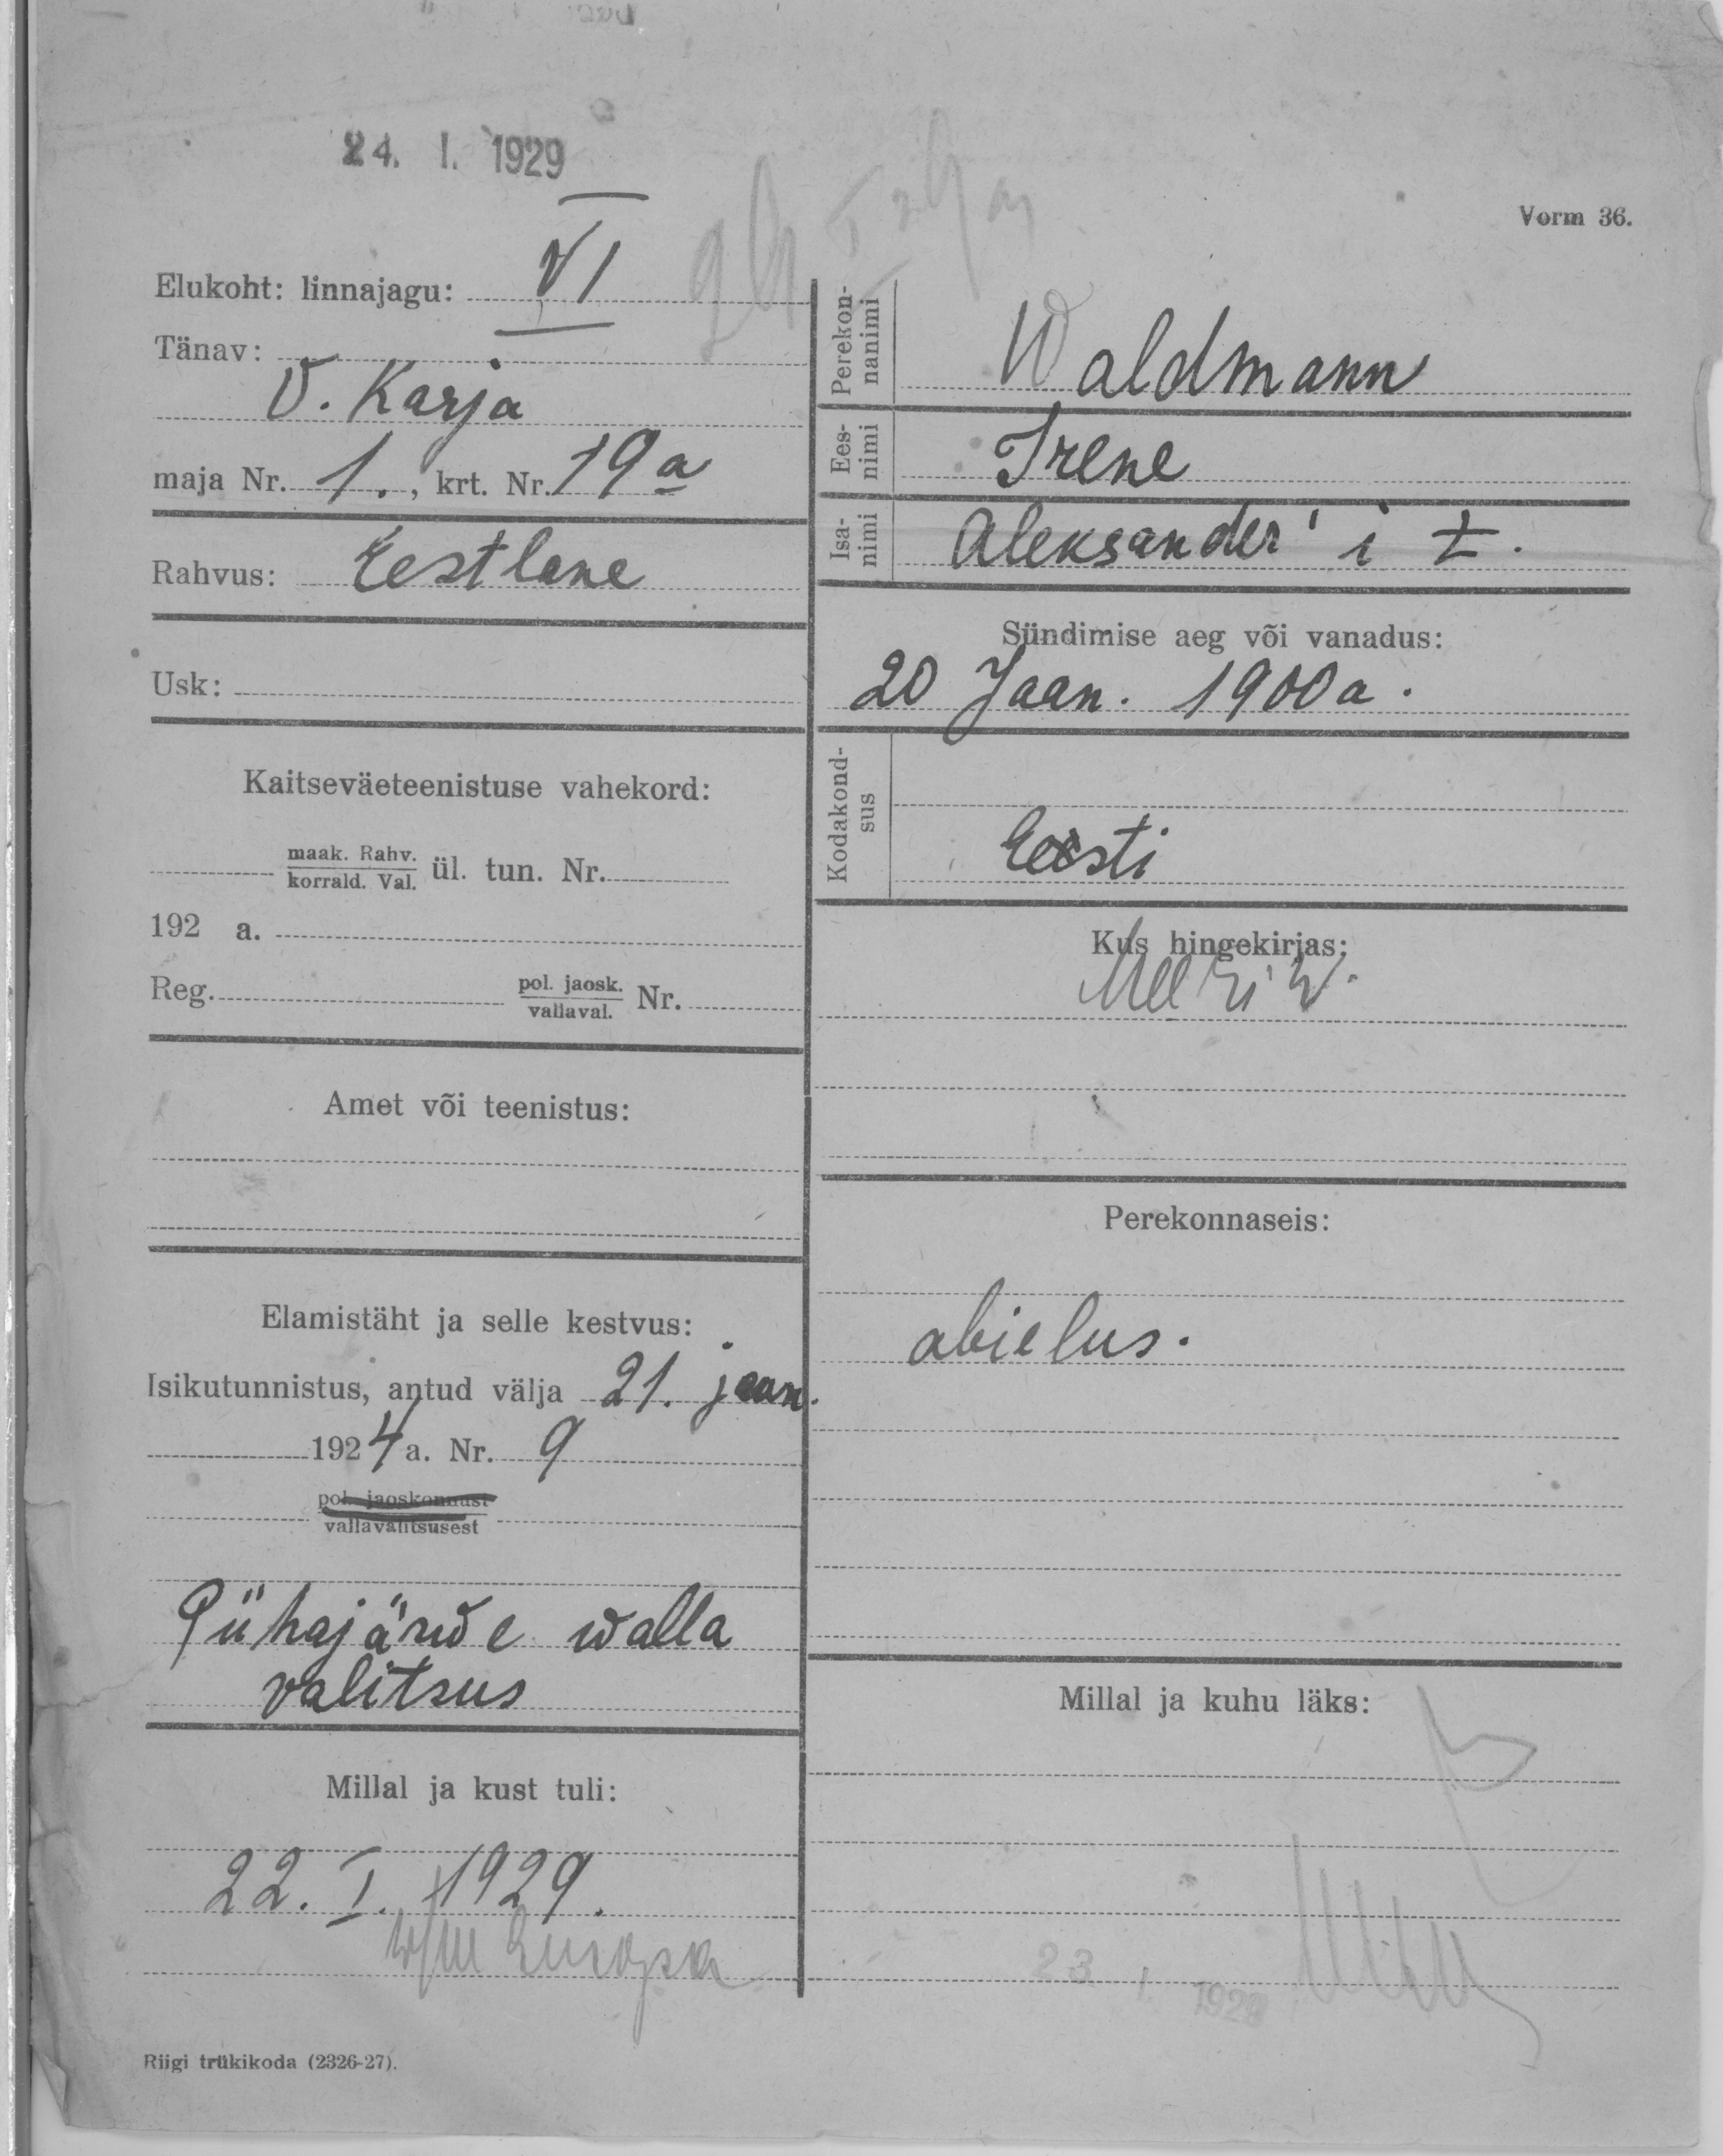 24. I. 1929
Vorm 36.
Elukoht: linnajagu: VI
Tänav:
V. Karja
maja Nr. 1., krt. Nr. 19a
Rahvus: Eestlane
Usk:
Kaitseväeteenistuse vahekord:
maak. Rahv.
korrald. Val. ül. tun. Nr.
192 a.
Reg. pol. jaosk.
vallaval. Nr.
Amet või teenistus:
Elamistäht ja selle kestvus:
Isikutunnistus, antud välja 21. jaan.
1924 a. Nr. 9
pol. jaoskonnast
vallavalitsusest
Pühajärwe walla
valitsus
Millal ja kust tuli:
22. I. 1929.
Riigi trükikoda (2326-27).
Perekon-
nanimi
Waldmann
Ees-
nimi
Irene
Isa-
nimi
Aleksander'i t.
Sündimise aeg või vanadus:
20 Jaan. 1900 a.
Kodakond-
sus
Eesti
Kus hingekirjas:
Perekonnaseis:
abielus.
Millal ja kuhu läks:
23 I. 1929